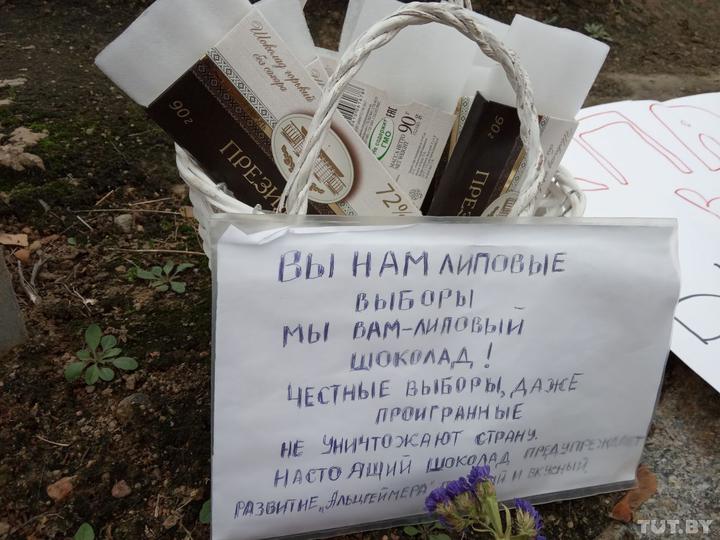 Шоколад горький
без сахара
90 г
ПРЕЗИ
72%
ГМО
МАССА НЕТТО
90 г
90г
ПРЕ
ВЫ НАМ ЛИПОВЫЕ
ВЫБОРЫ
МЫ ВАМ-ЛИПОВЫЙ
ШОКОЛАД!
ЧЕСТНЫЕ ВЫБОРЫ, ДАЖЕ
ПРОИГРАННЫЕ
НЕ УНИЧТОЖАЮТ СТРАНУ.
НАСТОЯЩИЙ ШОКОЛАД ПРЕДУПРЕЖДАЕТ
РАЗВИТИЕ „АЛЬЦГЕЙМЕРА" И ВКУСНЫЙ.
TUT.BY